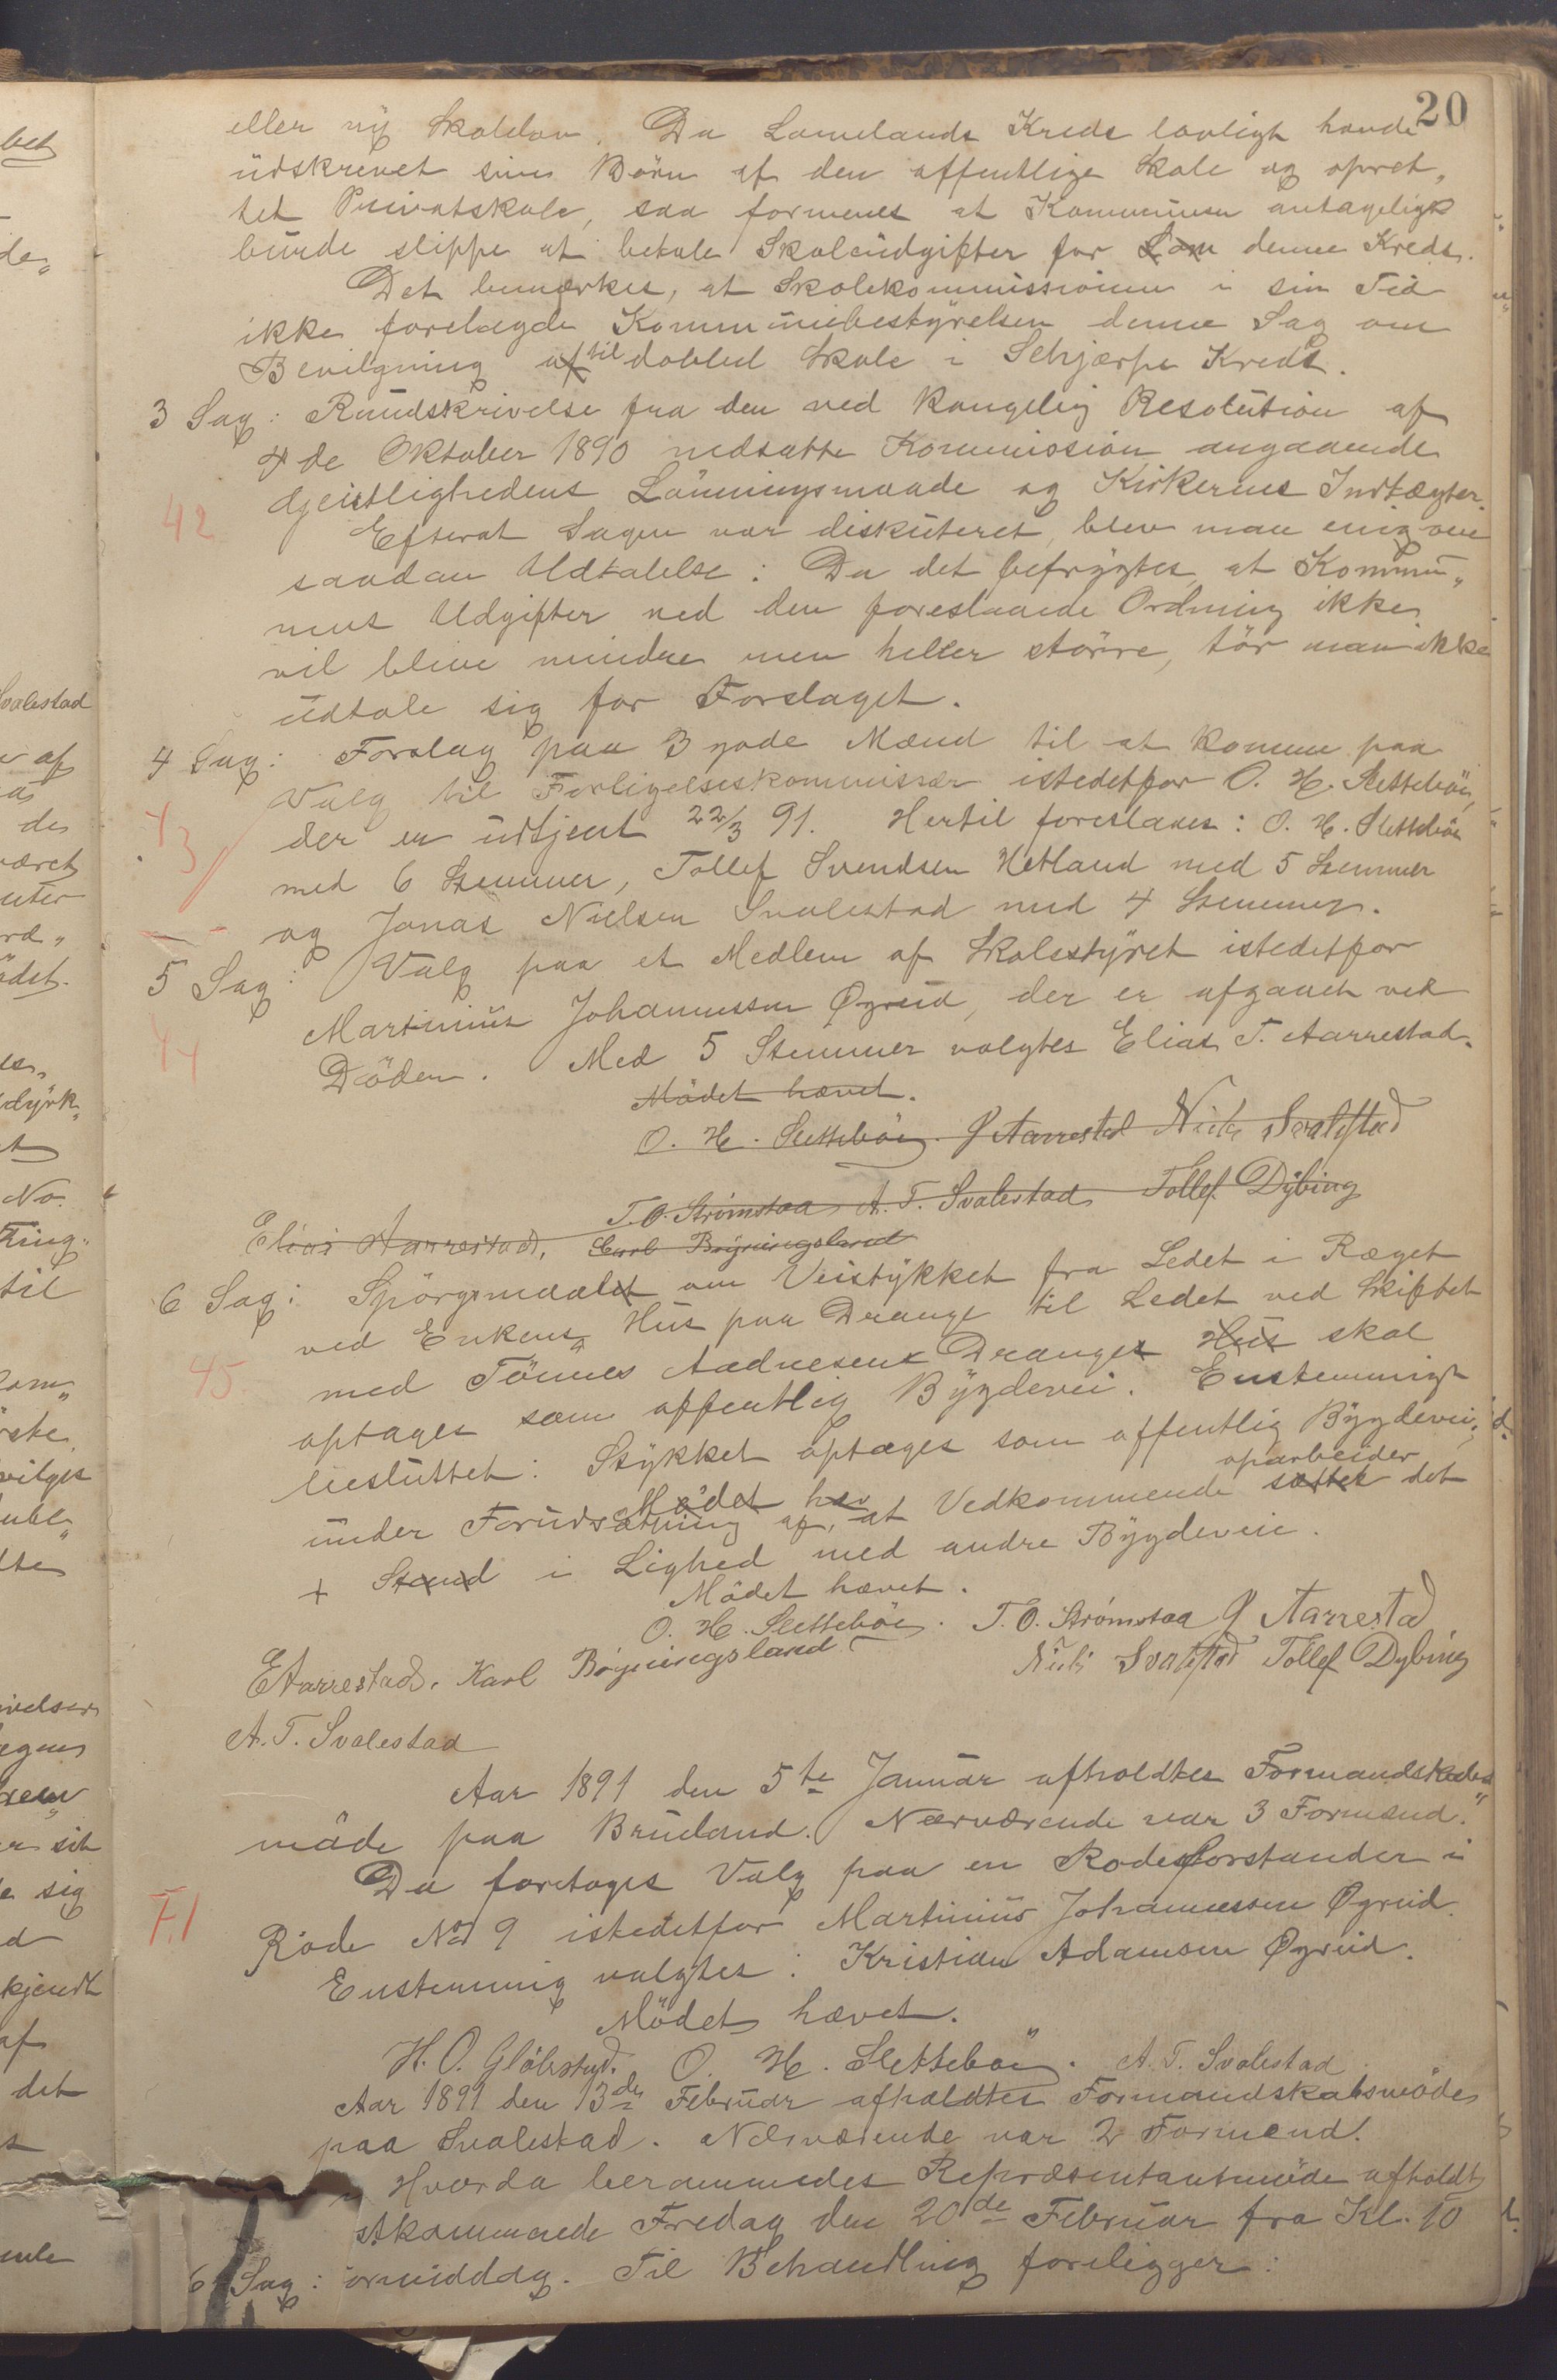 20
eller ny Skolelov. Da Lomelands Kreds lovligt havde
udskrevet sine Börn af den offentlige Skole og opret„
tet Privatskole, saa formenes at Kommunen antageligt
burde slippe at betale Skoleudgifter for Lom denne Kreds.
Det bemærkes, at Skolekommissionen i sin Tid
ikke forelagde Kommunebestyrelsen denne Sag om
Bevilgning af til dobbel Skole i Schjærpe Kreds.
3 Sag: Rundskrivelse fra den ved kongelig Resolution af
4de Oktober 1890 nedsatte Kommission angaaende
Gjeistlighedens Lönningsmaade og Kirkernes Indtægter.
42
Efterat Sagen var diskuteret, blev man enig om
saadan Udtalelse: Da det befrygtes at Kommu„
nens Udgifter ved den foreslaaede Ordning ikke
vil blive mindre men heller större, tör man ikke
udtale sig for Forslaget.
4 Sag: Forslag paa 3 gode Mænd til at komme paa
Valg til Forligelseskommissær istedetfor O. H. Slettebö,
43
der er udtjent 22/3 91. Hertil foreslaaes: O. H. Slettebö
med 6 Stemmer, Tollef Svendsen Hetland med 5 Stemmer
og Jonas Nielsen Svalestad med 4 Stemmer.
5 Sag: Valg paa et Medlem af Skolestyret istedetfor
Martinius Johannessen Øgreid, der er afgaaet ved
44
Döden. Med 5 Stemmer valgtes Elias T. Aarrestad.
Mödet hævet.
O. H. Slettebö. Aarrestad Niels Svalestad
T. O. Strömstaa A. T. Svalestad Tollef Dybing
Elias Aarrestad, Carl Bøyningsland
6 Sag: Spörgsmaalet om Veistykket fra Ledet i Ræget
ved Enkens Hus paa Drange til Ledet ved Skiftet
45
med Tönnes Aadnesens Dranges Hus skal
optages som offentlig Bygdevei. Enstemmigt
besluttet: Stykket optages som offentlig Bygdevei,
Mødet hæv oparbeider
under Forudsætning af, at Vedkommende sætter det
+ Stand i Lighed med andre Bygdeveie.
Mödet hævet.
O. H. Slettebö. T. O. Strömstaa Aarrestad
E Aarrestad. Karl Bøyningsland Niels Svalestad Tollef Dybing
A. T. Svalestad
Aar 1891 den 5te Januar afholdtes Formandskabs„
möde paa Bruland. Nærværende var 3 Formænd.
Da foretoges Valg paa en Rodeforstander i
F. 1
Rode No 9 istedetfor Martinius Johannessen Øgreid.
Enstemmig valgtes: Kristian Adamsen Øgreid.
Mödet hævet.
H. O. Gläbstad. O. H. Slettebö. A. T. Svalestad
Aar 1891 den 13de Februar afholdtes Formandskabsmöde
paa Svalestad. Nærværende var 2 Formænd.
Hvorda berammedes Repræsentantmöde afholdt
stkommende Fredag den 20de Februar fra Kl. 10
6 Sag: ormiddag. Til Behandling foreligger: